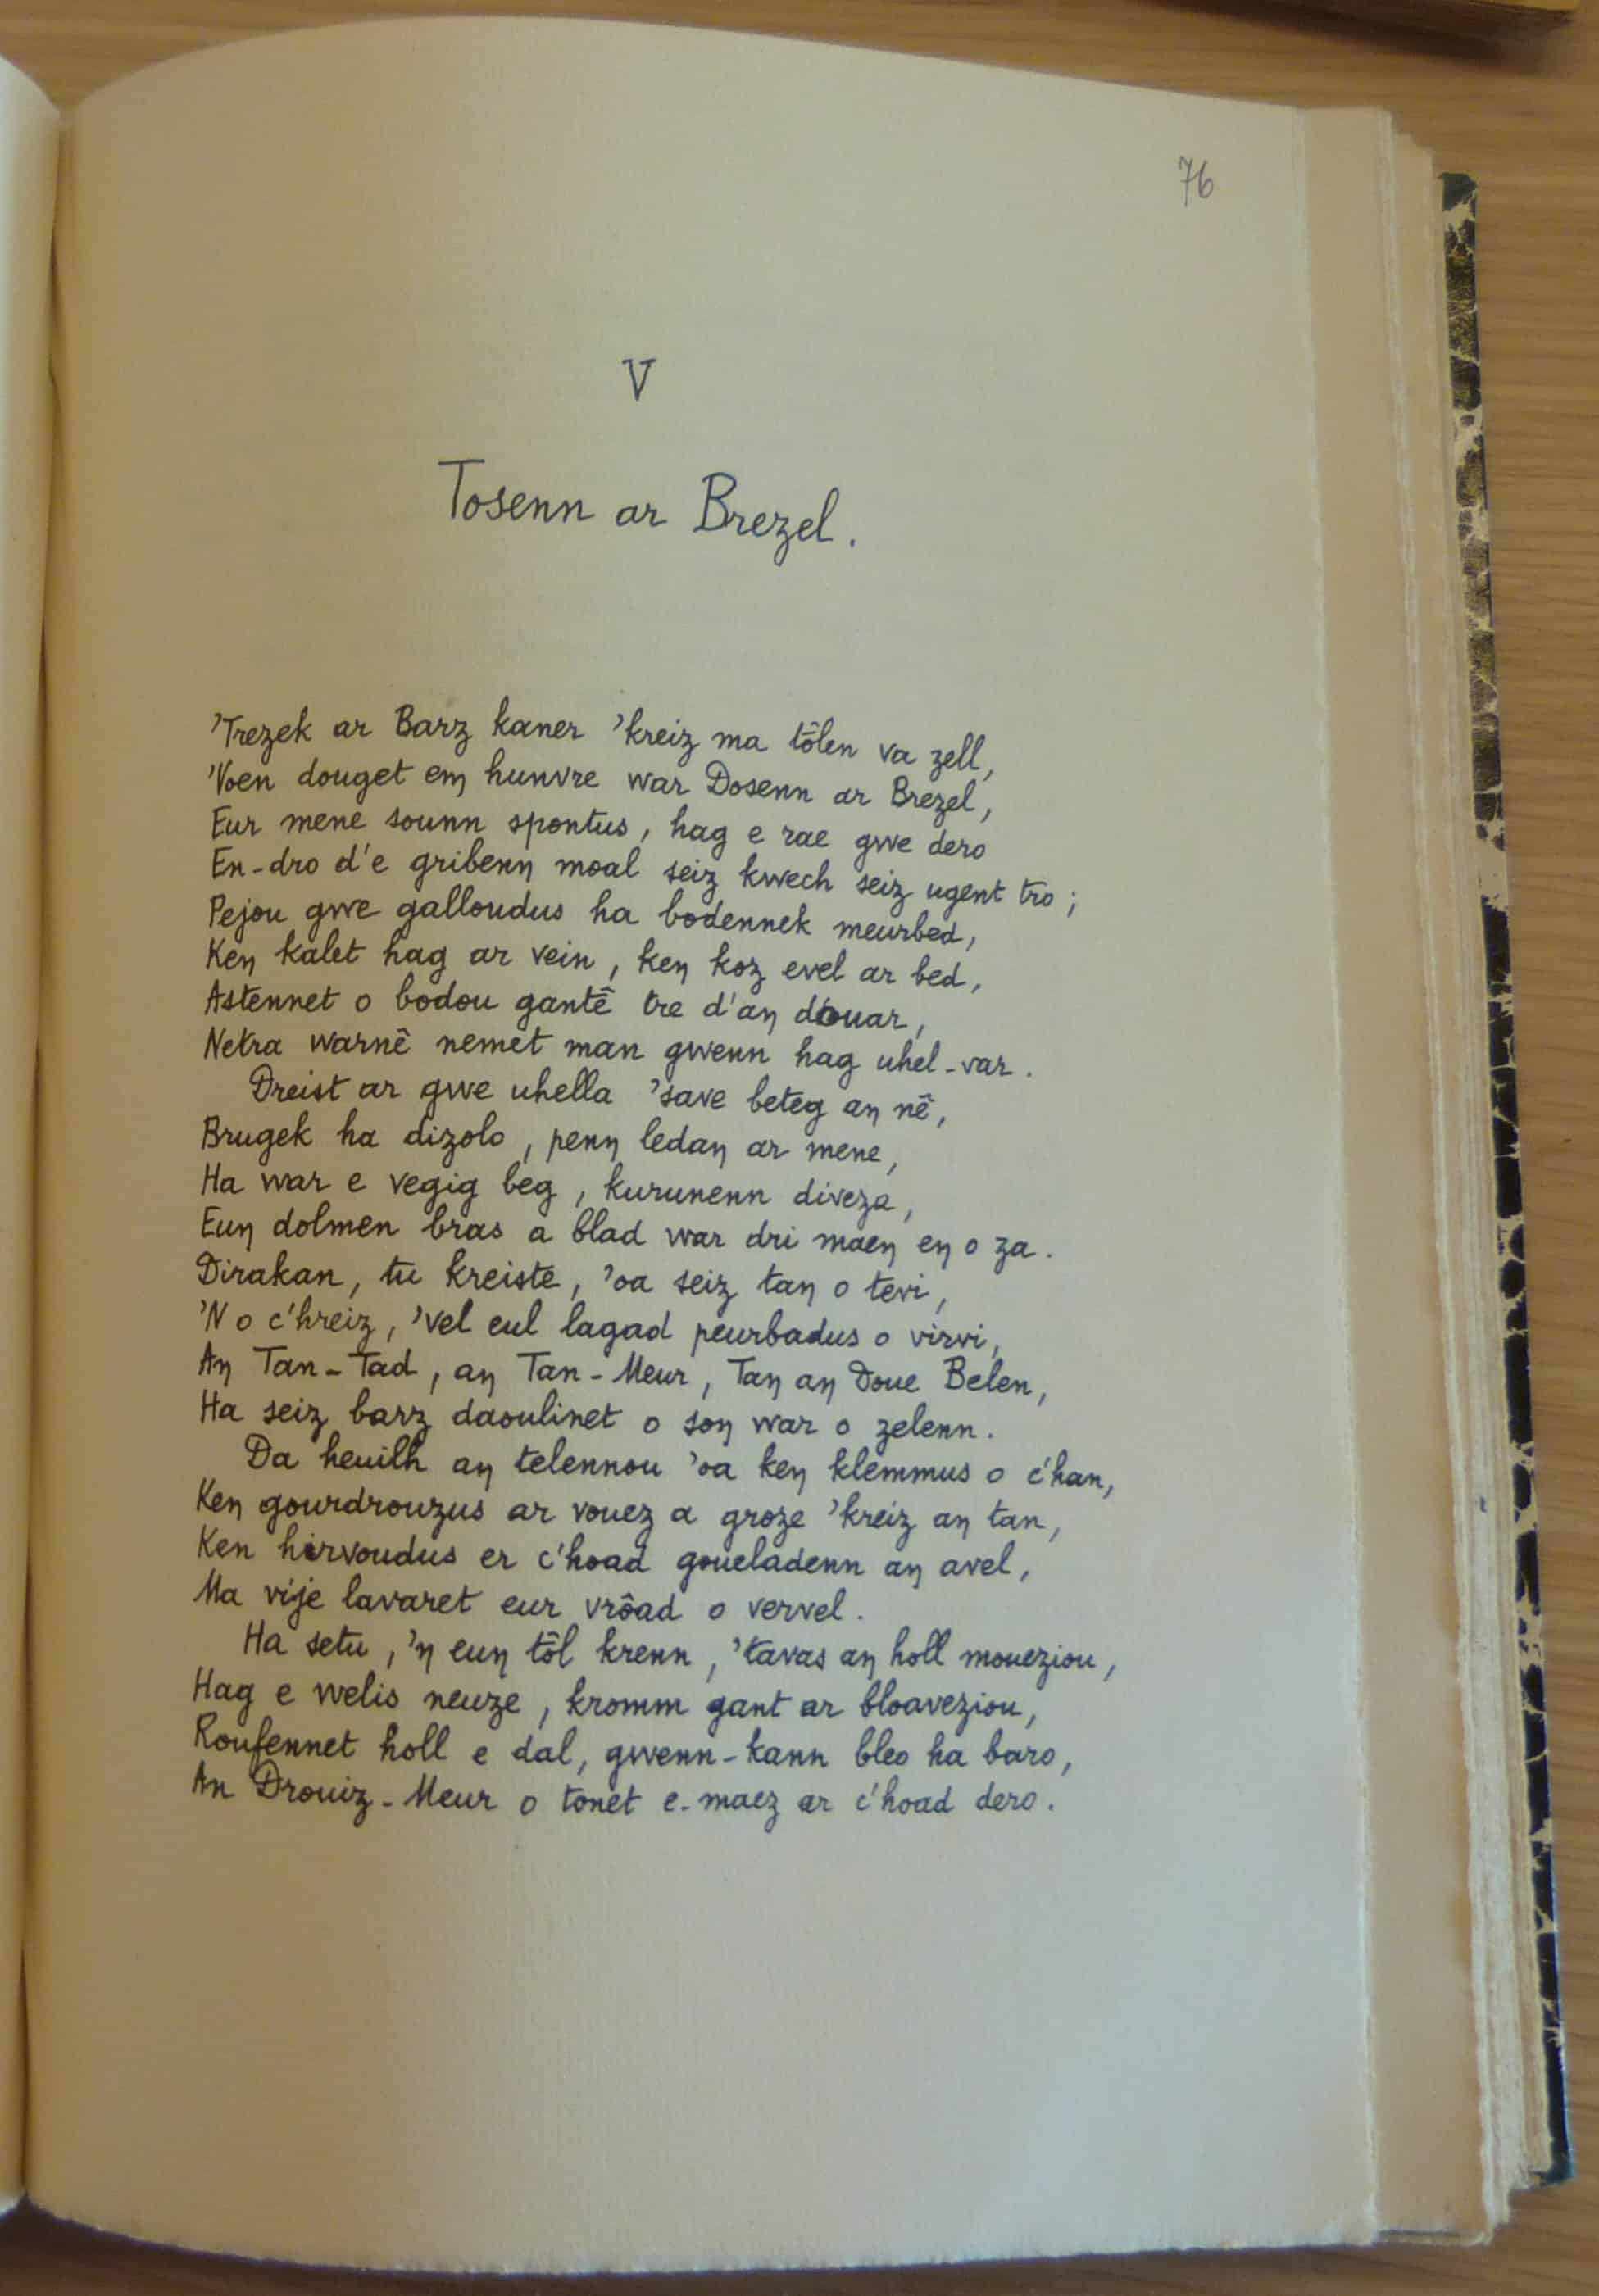 76
V
Tosenn ar Brezel.
'Trezek ar Barz kaner 'kreiz ma tôlen va zell,
'Voen douget eŋ hunvre war Dosenn ar Brezel,
Eur mene sounn spontus, hag e rae gwe dero
En-dro d'e gribenŋ moal seiz kwech seiz ugent tro;
Pejou gwe galloudus ha bodennek meurbed,
Keŋ kalet hag ar vein, keŋ koz evel ar bed,
Astennet o bodou gantê tre d'aŋ douar,
Netra warnê nemet man gwenn hag uhel-var.
Dreist ar gwe uhella 'save beteg aŋ nê,
Brugek ha dizolo, penŋ ledaŋ ar mene,
Ha war e vegig beg, kurunenn diveza,
Euŋ dolmen bras a blad war dri maeŋ eŋ o za.
Dirakan, tu kreiste, 'oa seiz taŋ o tevi,
'N o c'hreiz, 'vel eul lagad peurbadus o virvi,
Aŋ Tan-Tad, aŋ Tan-Meur, Taŋ aŋ Doue Belen,
Ha seiz barz daoulinet o soŋ war o zelenn.
Da heuilh aŋ telennou 'oa keŋ klemmus o c'han,
Keŋ gourdrouzus ar vouez a groze 'kreiz aŋ tan,
Ken hirvoudus er c'hoad goueladenn aŋ avel,
Ma vije lavaret eur vrôad o vervel.
Ha setu, 'ŋ euŋ tôl krenn, 'tavas aŋ holl moueziou,
Hag e welis neuze, kromm gant ar bloaveziou,
Roufennet holl e dal, gwenn-kann bleo ha baro,
An Drouiz-Meur o tonet e-maez ar c'hoad dero.